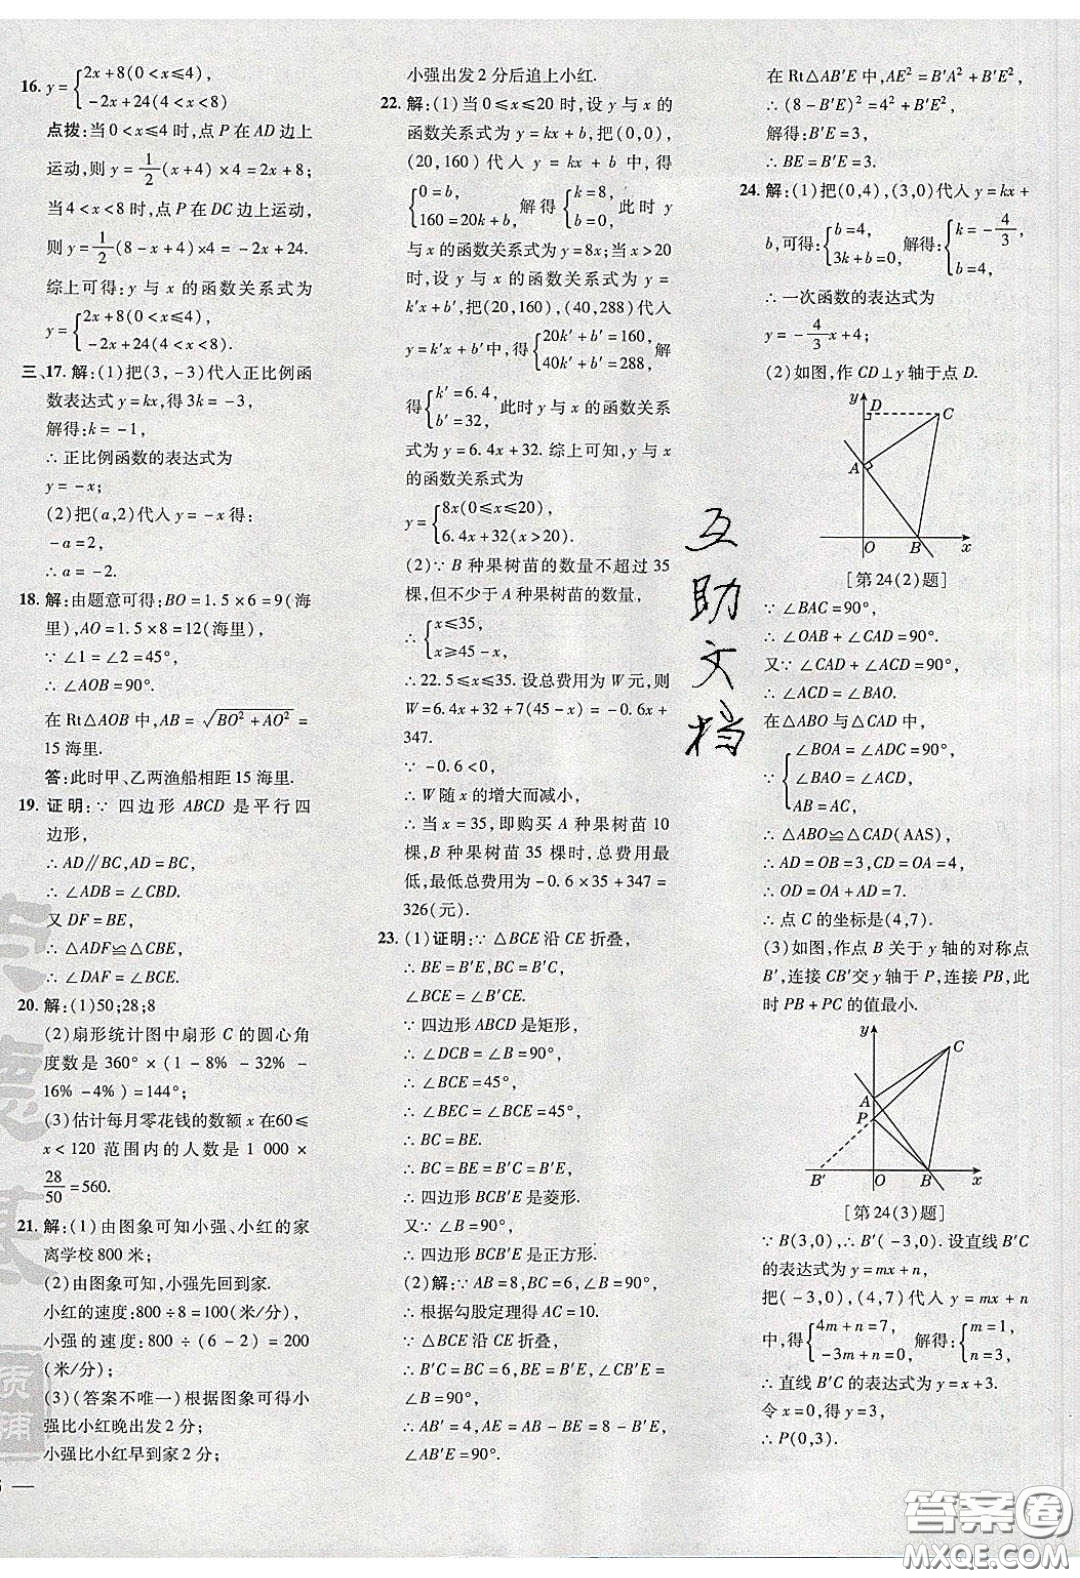 16. y = { 2x+8(0<x≤4),
−2x+24(4<x<8)
点拨:当0<x≤4时,点P在AD边上
运动,则 y=1/2(x+4)×4=2x+8;
当4<x<8时,点P在DC边上运动,
则 y=1/2(8−x+4)×4=−2x+24.
综上可得:y与x的函数关系式为
y = { 2x+8(0<x≤4),
−2x+24(4<x<8).
三、17. 解:(1)把(3,−3)代入正比例函
数表达式y=kx,得3k=−3,
解得:k=−1,
∴正比例函数的表达式为
y=−x;
(2)把(a,2)代入y=−x得:
−a=2,
∴a=−2.
18. 解:由题意可得:BO=1.5×6=9(海
里),AO=1.5×8=12(海里),
∵∠1=∠2=45°,
∴∠AOB=90°.
在Rt△AOB中,AB=√(BO²+AO²)=
15海里.
答:此时甲、乙两渔船相距15海里.
19. 证明:∵四边形ABCD是平行四
边形,
∴AD∥BC,AD=BC,
∴∠ADB=∠CBD.
又DF=BE,
∴△ADF≌△CBE,
∴∠DAF=∠BCE.
20. 解:(1)50;28;8
(2)扇形统计图中扇形C的圆心角
度数是360°×(1−8%−32%−
16%−4%)=144°;
(3)估计每月零花钱的数额x在60≤
x<120范围内的人数是1 000×
28/50=560.
21. 解:(1)由图象可知小强、小红的家
离学校800米;
(2)由图象可知,小强先回到家.
小红的速度:800÷8=100(米/分),
小强的速度:800÷(6−2)=200
(米/分);
(3)(答案不唯一)根据图象可得小
强比小红晚出发2分;
小强比小红早到家2分;
小强出发2分后追上小红.
22. 解:(1)当0≤x≤20时,设y与x的
函数关系式为y=kx+b,把(0,0),
(20,160)代入y=kx+b中,得
{ 0=b,
160=20k+b, 解得 { k=8,
b=0, 此时y
与x的函数关系式为y=8x;当x>20
时,设y与x的函数关系式为y=
k′x+b′,把(20,160),(40,288)代入
y=k′x+b′中,得 { 20k′+b′=160,
40k′+b′=288, 解
得 { k′=6.4,
b′=32, 此时y与x的函数关系
式为y=6.4x+32.综上可知,y与x
的函数关系式为
y = { 8x(0≤x≤20),
6.4x+32(x>20).
(2)∵B种果树苗的数量不超过35
棵,但不少于A种果树苗的数量,
∴ { x≤35,
x≥45−x,
∴22.5≤x≤35.设总费用为W元,则
W=6.4x+32+7(45−x)=−0.6x+
347.
∵−0.6<0,
∴W随x的增大而减小,
∴当x=35,即购买A种果树苗10
棵,B种果树苗35棵时,总费用最
低,最低总费用为−0.6×35+347=
326(元).
23. (1)证明:∵△BCE沿CE折叠,
∴BE=B′E,BC=B′C,
∠BCE=∠B′CE.
∵四边形ABCD是矩形,
∴∠DCB=∠B=90°,
∴∠BCE=45°,
∴∠BEC=∠BCE=45°,
∴BC=BE.
∴BC=BE=B′C=B′E,
∴四边形BCB′E是菱形.
又∵∠B=90°,
∴四边形BCB′E是正方形.
(2)解:∵AB=8,BC=6,∠B=90°,
∴根据勾股定理得AC=10.
∵△BCE沿CE折叠,
∴B′C=BC=6,BE=B′E,∠CB′E=
∠B=90°,
∴AB′=4,AE=AB−BE=8−B′E,
∠AB′E=90°.
在Rt△AB′E中,AE²=B′A²+B′E²,
∴(8−B′E)²=4²+B′E²,
解得:B′E=3,
∴BE=B′E=3.
24. 解:(1)把(0,4),(3,0)代入y=kx+
b,可得: { b=4,
3k+b=0, 解得: { k=−4/3,
b=4,
∴一次函数的表达式为
y=−4/3x+4;
(2)如图,作CD⊥y轴于点D.
y D C
A
O B x
[第24(2)题]
∵∠BAC=90°,
∴∠OAB+∠CAD=90°.
又∵∠CAD+∠ACD=90°,
∴∠ACD=∠BAO.
在△ABO与△CAD中,
∵ { ∠BOA=∠ADC=90°,
∠BAO=∠ACD,
AB=AC,
∴△ABO≌△CAD(AAS),
∴AD=OB=3,CD=OA=4,
∴OD=OA+AD=7.
∴点C的坐标是(4,7).
(3)如图,作点B关于y轴的对称点
B′,连接CB′交y轴于P,连接PB,此
时PB+PC的值最小.
y C
A
P
B′ O B x
[第24(3)题]
∵B(3,0),∴B′(−3,0).设直线B′C
的表达式为y=mx+n,
把(−3,0),(4,7)代入y=mx+n
中,得 { 4m+n=7,
−3m+n=0, 解得: { m=1,
n=3,
∴直线B′C的表达式为y=x+3.
令x=0,得y=3,
∴P(0,3).
互助文档
答案圈
MXQE.COM